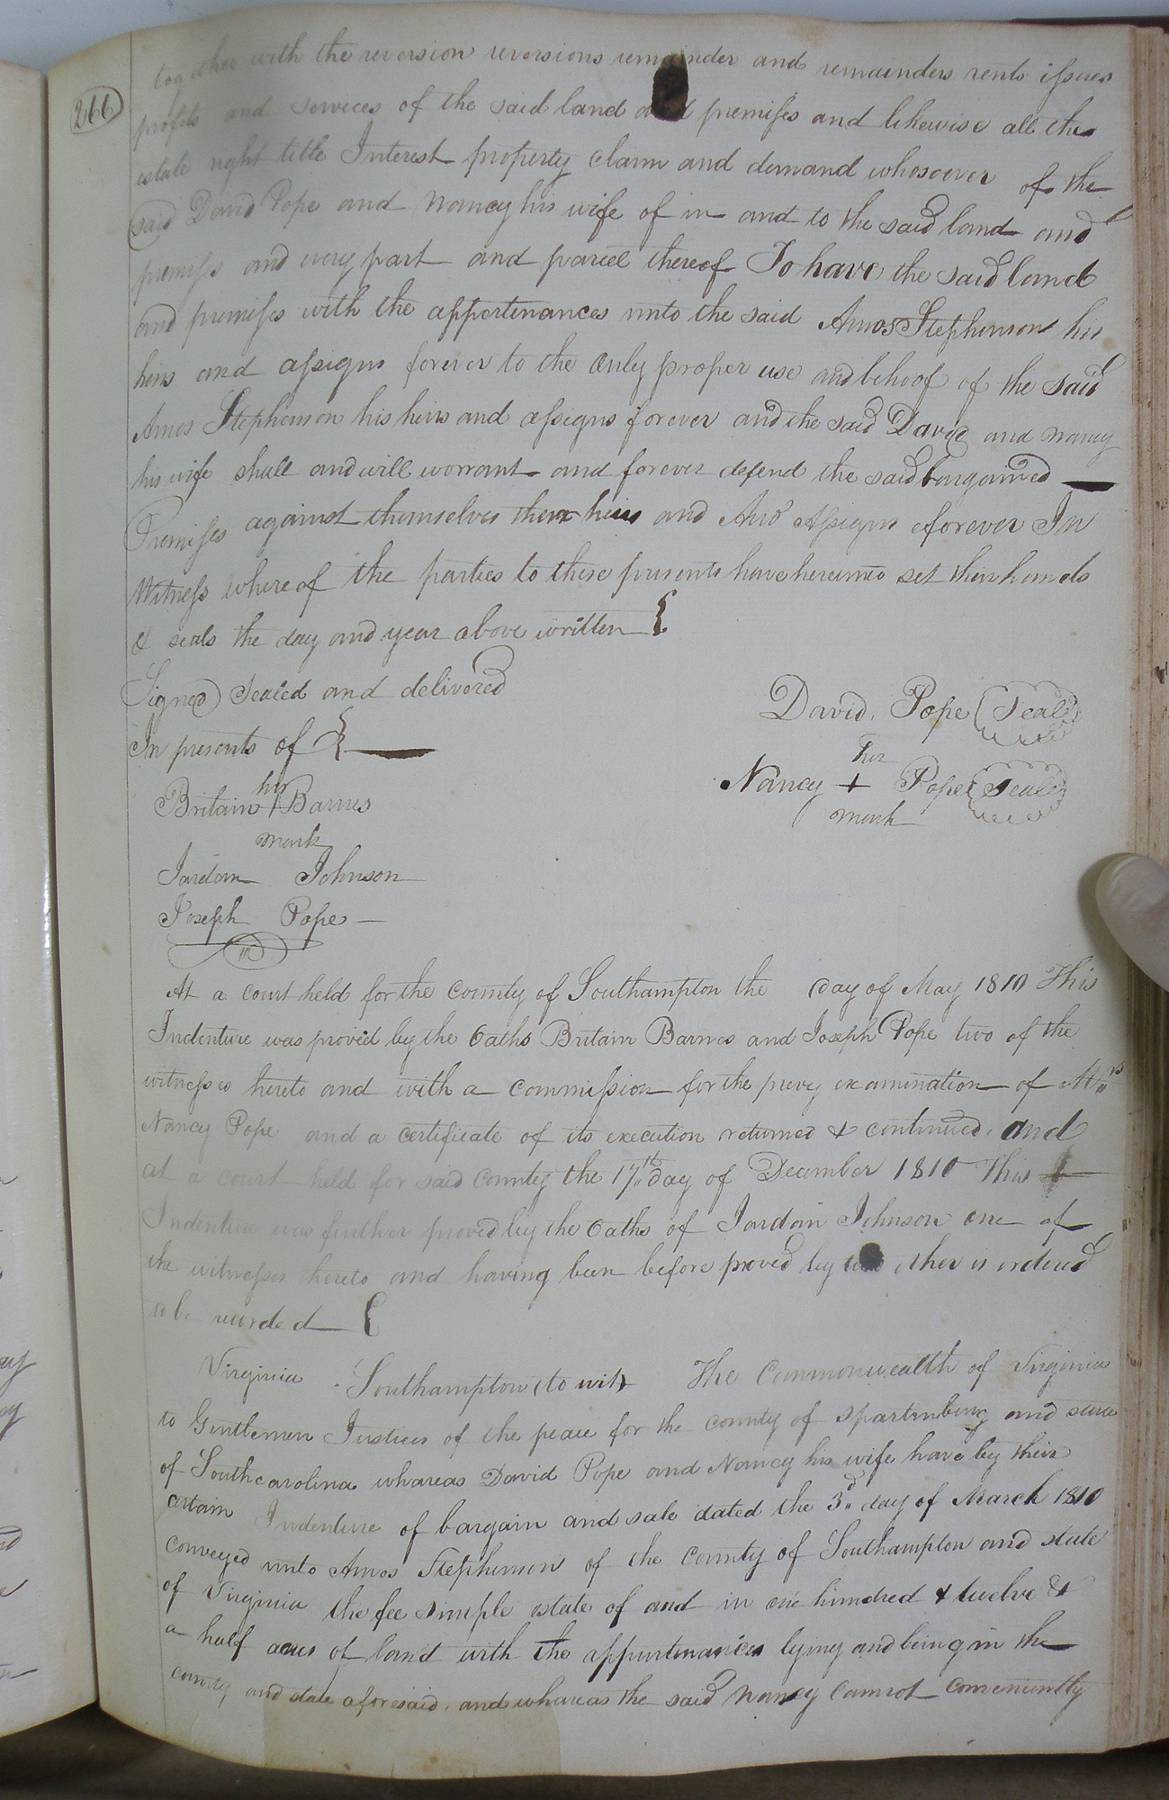 266
together with the reversion reversions remainder and remainders rents issues
profits and services of the said land and premisses and likewise all the
estate right title Interest property claim and demand whosoever of the
said David Pope and Nancy his wife of in and to the said land and
premisses and every part and parcel thereof To have the said land
and premisses with the appertenances unto the said Amos Stephenson his
heirs and assigns forever to the only proper use and behoof of the said
Amos Stephenson his heirs and assigns forever and the said David and Nancy
his wife shall and will worrant and forever defend the said bargained
Premisses against themselves their heirs and And Assigns forever In
Witness whereof the parties to these presents have hereunto set their hands
& seals the day and year above written
Signed Sealed and delivered
In presents of
David Pope Seal
her
Nancy + Pope Seal
mark
his
Britain + Barnes
mark
Jordan Johnson
Joseph Pope
At a court held for the County of Southampton the day of May 1810 This
Indenture was proved by the Oaths Britain Barnes and Joseph Pope two of the
witnesses hereto and with a commission for the privy examination of Mrs
Nancy Pope and a certificate of its execution returned & continued. and
at a court held for said County the 17th day of December 1810 This
Indenture was further proved by the Oaths of Jordain Johnson one of
the witnesses hereto and having been before proved by two other is ordered
to be recorded
Virginia Southampton (to wit) The Commonwealth of Virginia
to Gentlemen Justices of the peace for the county of Spartinburg and state
of Southcarolina whareas David Pope and Nancy his wife have by their
certain Indenture of bargain and sale dated the 3d day of March 1810
conveyed unto Amos Stephenson of the County of Southampton and state
of Virginia the fee simple estate of and in one hundred & twelve &
a half acres of land with the appurtenances lying and being in the
county and state aforesaid. and whareas the said Nancy Cannot conveniently